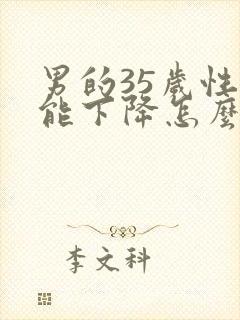 男的35歲性
能下降怎麼
李文科